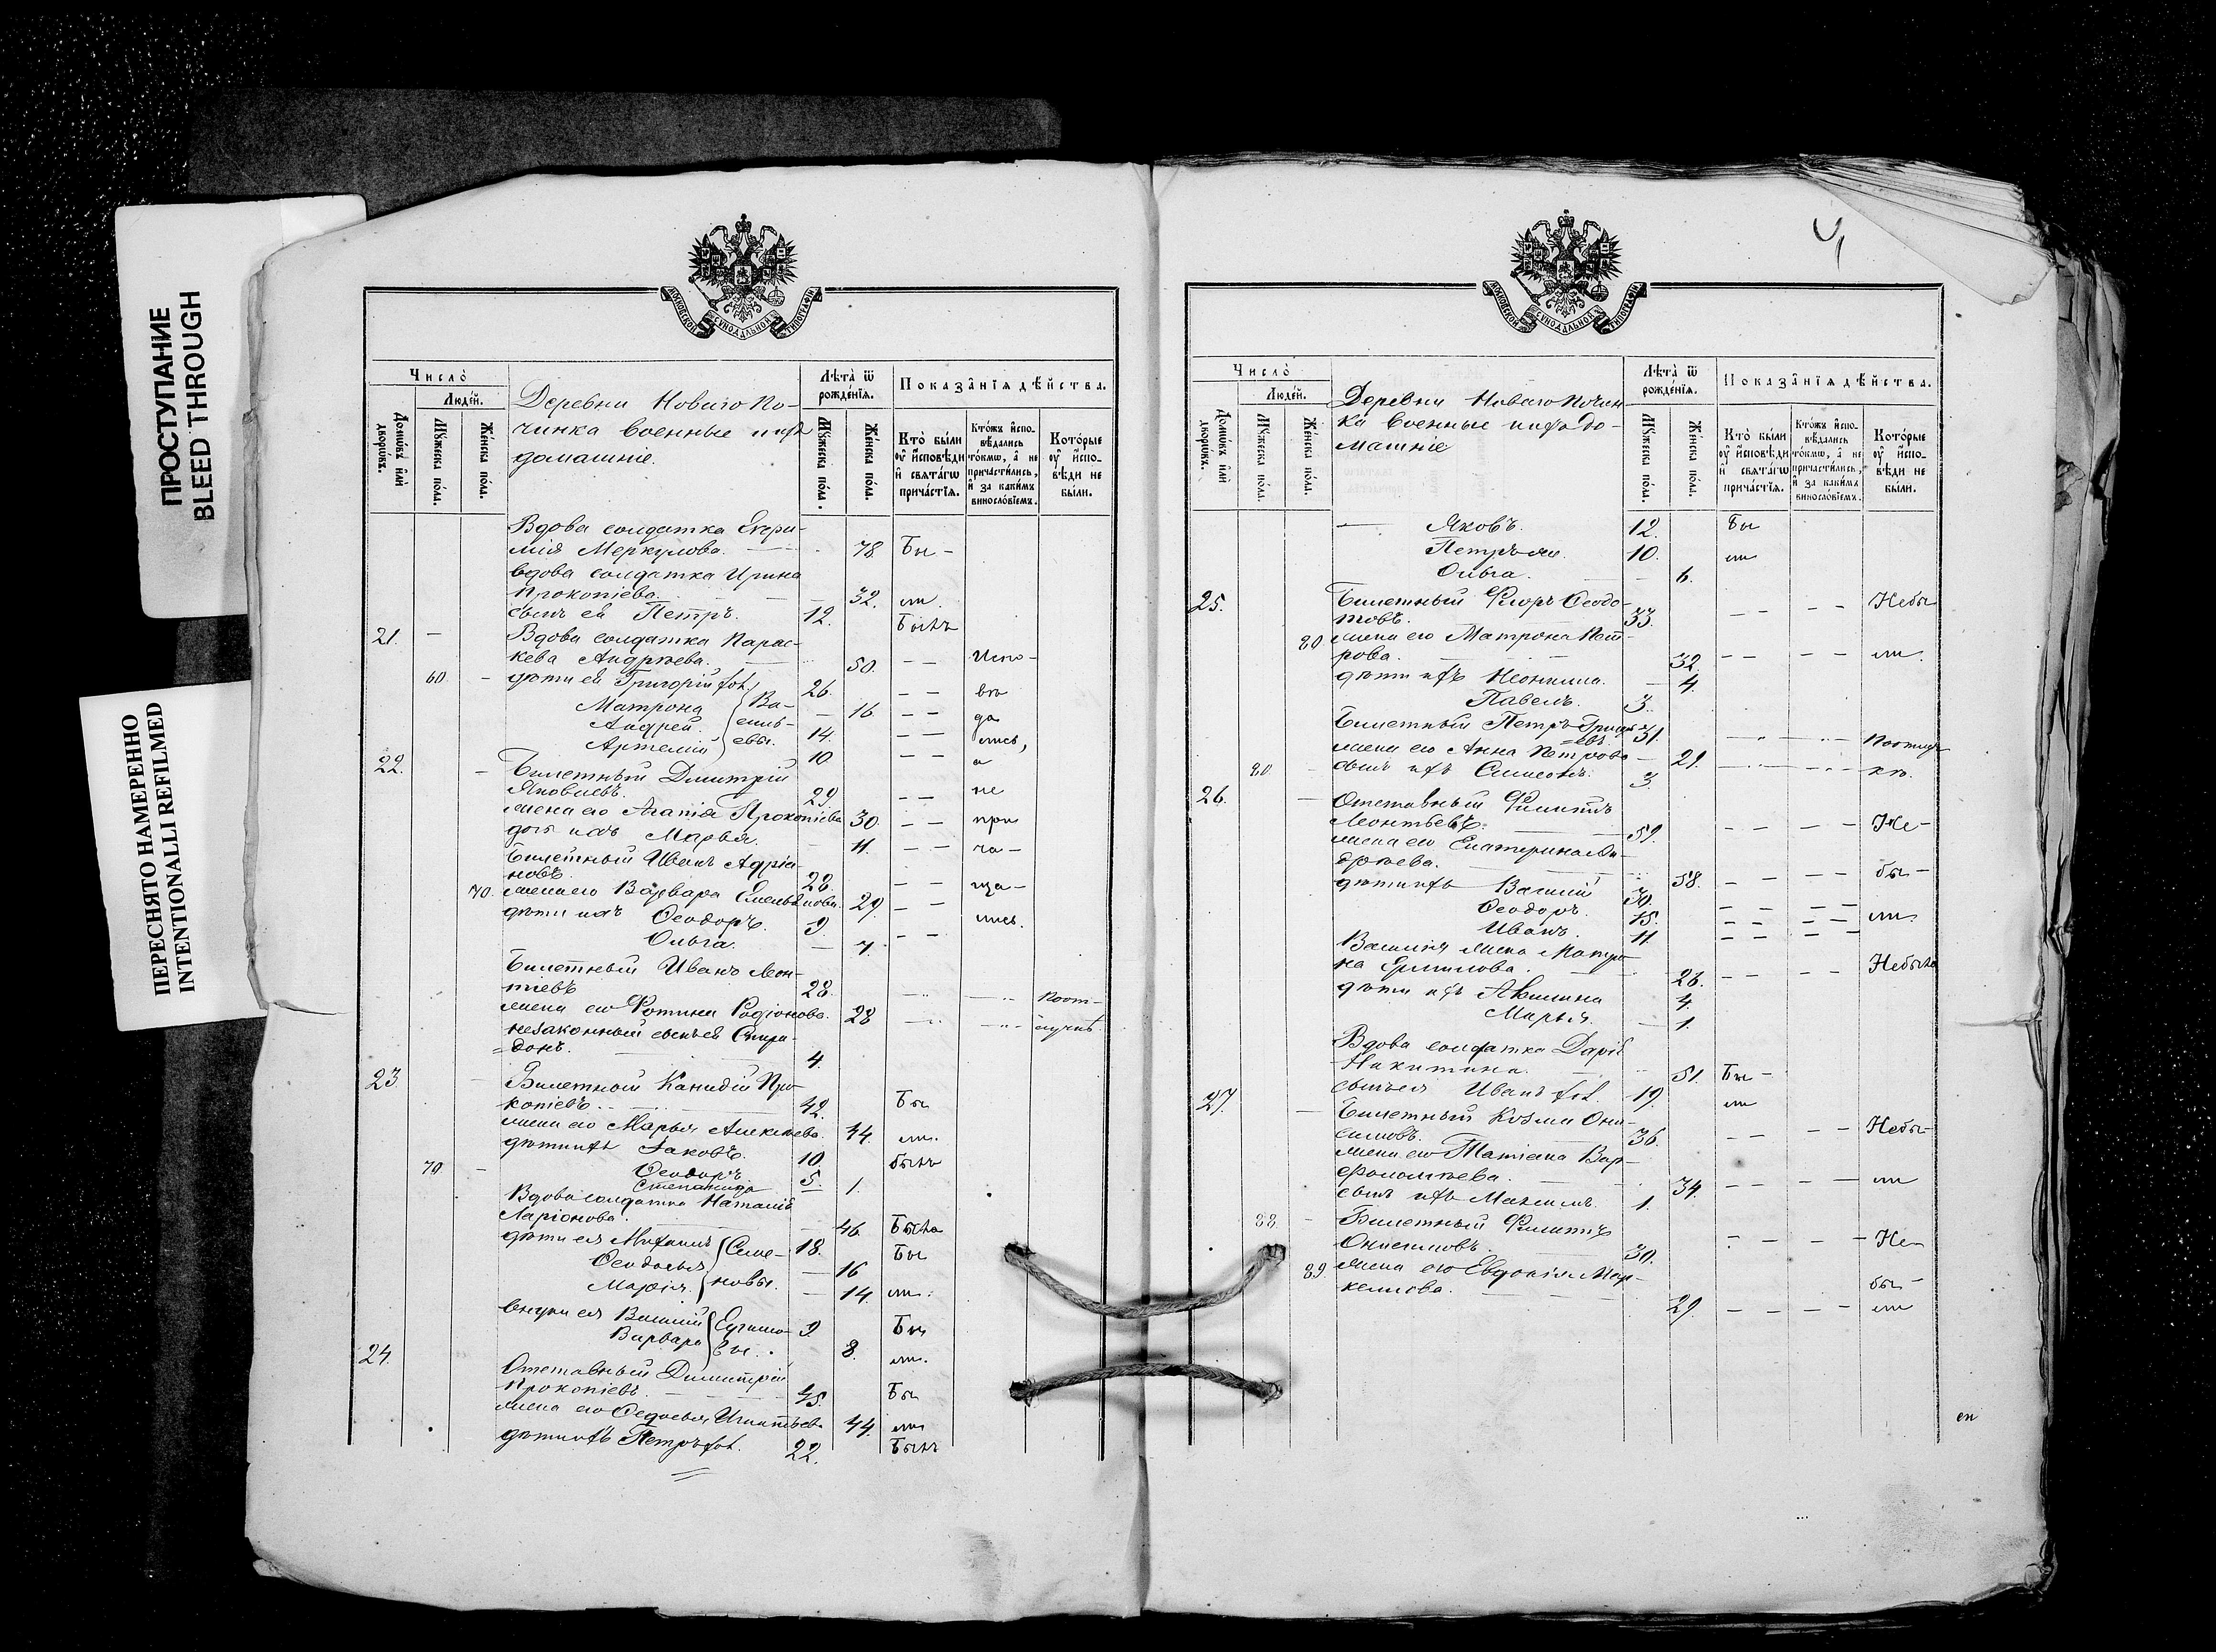 ПРОСТУПАНИЕ
BLEED THROUGH
ПЕРЕСНЯТО НАМЕРЕННО
INTENTIONALLI REFILMED
МОСКОВСКОЙ СѴНОДАЛЬНОЙ ТИПОГРАФІИ
Число̀
Людей.
Домѡвъ или дворѡвъ.
Мꙋжеска пола.
Женска пола.
Деревни Новаго По-
чинка военные и ихъ
домашніе.
Лѣта̀ ѿ рожденїѧ.
Мꙋжеска пола.
Женска пола.
Показанїѧ дѣйства.
Кто̀ были ᲂу҆ исповѣди и҆ свѧтагѡ причастїѧ.
Кто́жъ исповѣдались токмѡ, а҆ не причастились, и҆ за какимъ винословїемъ.
Которые ᲂу҆ исповѣди не были.
Вдова солдатка Екери-
мія Меркулова. 78 Бы-
вдова солдатка Ирина
Прокопіева. 32. ли.
сынъ ея Петръ. 12. Былъ
21. Вдова солдатка Парас-
кева Андреева. 50. Испо-
60. дѣти ея Григорій хол. 26. вѣ
Матрона 16. да
Андрей. 14. лись,
Артемій 10 а
Ва-
силь-
евы.
22. Билетный Димитрій
Яковлевъ. 29. не
жена его Агапія Прокопіева 30. при
дочь ихъ Марья. 11. ча-
Билетный Иванъ Адріа-
новъ. 28. ща-
70. жена его Варвара Емельянова. 29. лись.
дѣти ихъ Ѳеодоръ. 9.
Ольга. 7.
Билетный Иванъ Леон-
тіевъ 28. По от-
жена его Фотинія Родіонова. 28 лучкѣ
незаконный сынъ ея Спири-
=донъ. 4.
23. Билетной Канидій Про-
копіевъ. 42. Бы
жена его Марья Алексѣева. 44. ли.
дѣти ихъ Іаковъ. 10. былъ
70. Ѳеодоръ 5.
Степанида 1.
Вдова солдатка Наталія
Ларіонова. 46. Была
дѣти ея Михаилъ 18. Бы
Ѳеодосья 16
Марія. 14. ли.
Семе-
новы.
внуки ея Василій 9. Бы
Варвара 8. ли.
24. Отставный Димитрій
Прокопіевъ. 45. Бы
жена его Ѳедосья Игнатьева 44. ли
дѣти ихъ Петръ хол. 22. Былъ
МОСКОВСКОЙ СѴНОДАЛЬНОЙ ТИПОГРАФІИ
Число̀
Людей.
Домѡвъ или дворѡвъ.
Мꙋжеска пола.
Женска пола.
Деревни Новаго Почин
ка военные и ихъ до-
машніе
Лѣта̀ ѿ рожденїѧ.
Мꙋжеска пола.
Женска пола.
Показанїѧ дѣйства.
Кто̀ были ᲂу҆ исповѣди и҆ свѧтагѡ причастїѧ.
Кто́жъ исповѣдались токмѡ, а҆ не причастились, и҆ за какимъ винословїемъ.
Которые ᲂу҆ исповѣди не были.
Яковъ. 12. Бы
Петръ 10. ли
Ольга. 6.
25. Билетный Флоръ Ѳеодо-
товъ. 33. Небы
80 жена его Матрона Пет-
рова. 32. ли.
дѣти ихъ Неонила. 4.
Павелъ. 3.
Билетный Петръ Григорь-
=евъ. 31. По отлуч
жена его Анна Петрова 29. кѣ.
80 сынъ ихъ Симеонъ. 3.
26. Отставный Филиппъ
Леонтьевъ. 59. Не-
жена его Екатерина Ан-
дреева. 58. бы-
дѣти ихъ Василій 30.
Ѳеодоръ. 15. ли
Иванъ. 11.
Василія жена Матро-
на Ермилова. 26. Небыла
дѣти ихъ Акилина 4.
Марья. 1.
Вдова солдатка Дарія
Никитина. 51. Бы-
сынъ ея Иванъ хол. 19. ли
27. Билетный Козма Они-
симовъ. 36. Небы-
жена его Татіана Вар-
фоломѣева. 34. ли
сынъ ихъ Максимъ. 1.
88. Билетный Филиппъ
Онисимовъ. 30. Не-
89. жена его Евдокія Мар-
келлова. 29. бы-
ли